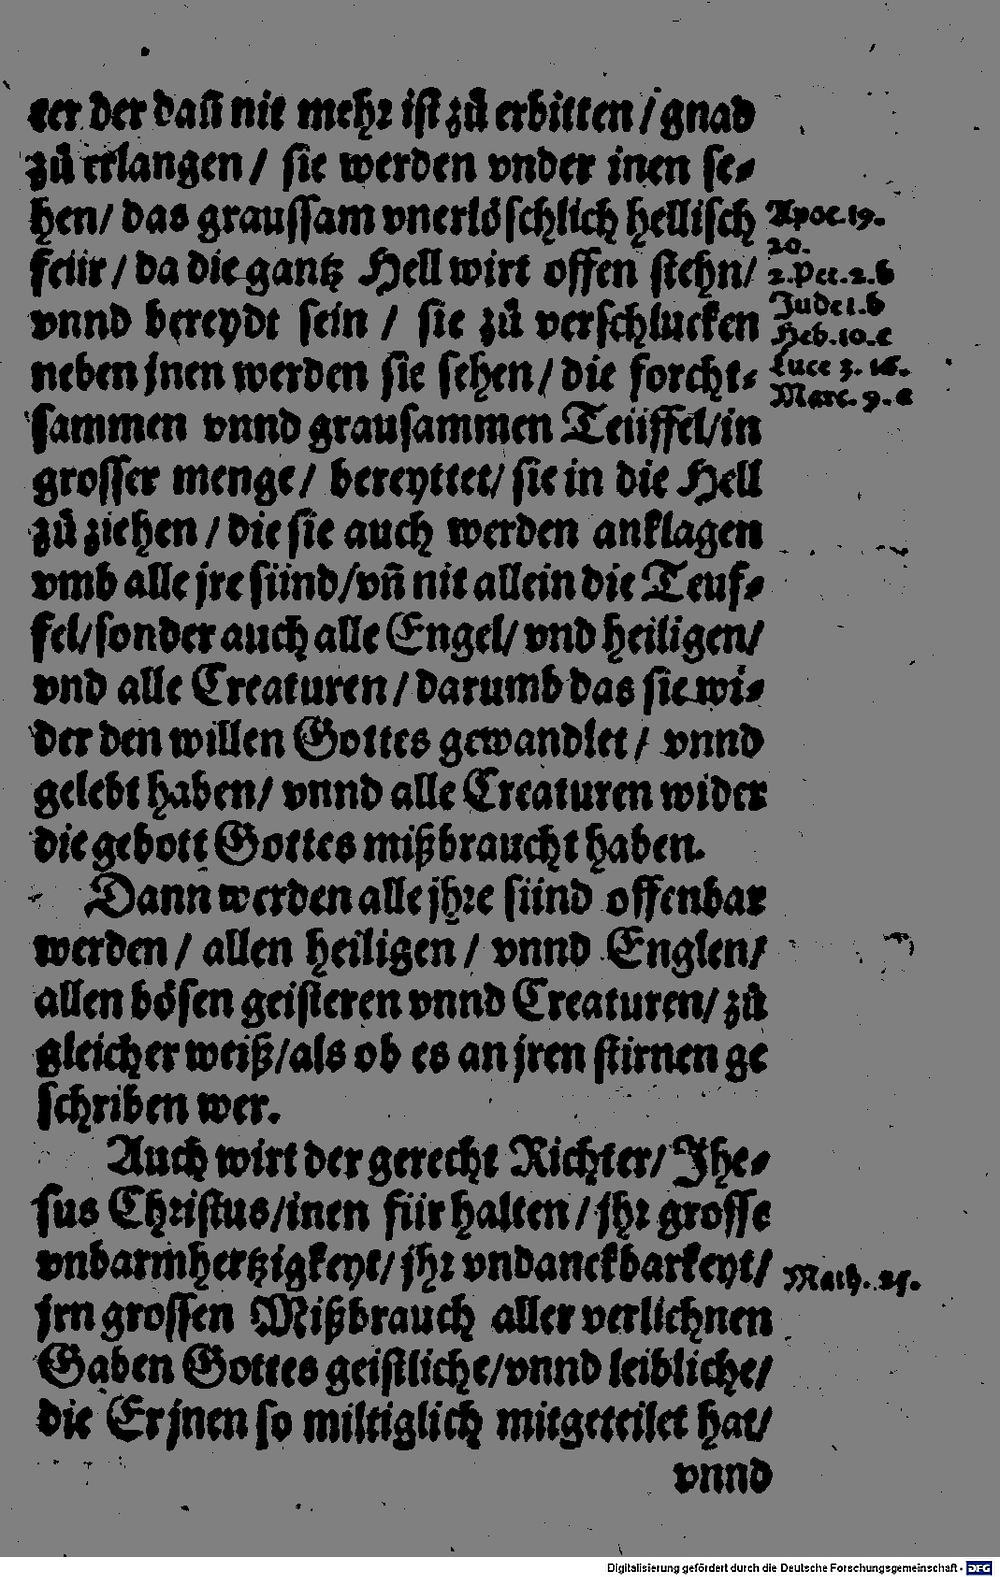 ter der dañ nit mehr ist zů erbitten / gnad
zů erlangen / sie werden vnder inen se⸗
hen/ das graussam vnerlöschlich hellisch
feür / da die gantz Hell wirt offen stehn/
vnnd bereydt sein / sie zů verschlucken
neben jnen werden sie sehen/ die forcht⸗
sammen vnnd grausammen Teüffel/in
grosser menge/ bereyttet/ sie in die Hell
zů ziehen / die sie auch werden anklagen
vmb alle jre sünd/vñ nit allein die Teuf⸗
fel/sonder auch alle Engel/ vnd heiligen/
vnd alle Creaturen / darumb das sie wi⸗
der den willen Gottes gewandlet / vnnd
gelebt haben/ vnnd alle Creaturen wider
die gebott Gottes mißbraucht haben.
Dann werden alle jhre sünd offenbar
werden / allen heiligen / vnnd Englen/
allen bösen geisteren vnnd Creaturen/ zů
gleicher weiß/als ob es an jren stirnen ge
schriben wer.
Auch wirt der gerecht Richter/ Jhe⸗
sus Christus/inen für halten / jhr grosse
vnbarmhertzigkeyt/ jhr vndanckbarkeyt/
jrn grossen Mißbrauch aller verlichnen
Gaben Gottes geistliche/vnnd leibliche/
die Er jnen so miltiglich mitgeteilet hat/
vnnd
Apoc.19.
20.
2.Pet.2.b
Jude 1.b
Heb.10.e
Luce 3. 16.
Marc. 9. e
Math. 25.
Digitalisierung gefördert durch die Deutsche Forschungsgemeinschaft - DFG